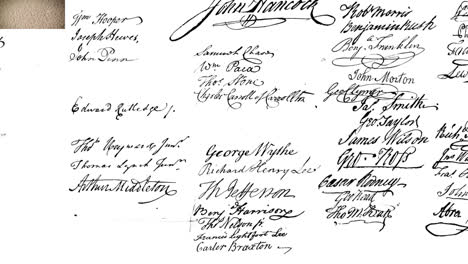 Wm Hooper
Joseph Hewes,
John Penn
Edward Rutledge /.
Thos Heyward Junr.
Thomas Lynch Junr.
Arthur Middleton
John Hancock
Samuel Chase
Wm Paca
Thos Stone
Charles Carroll of Carrollton
George Wythe
Richard Henry Lee
Th Jefferson
Benj Harrison
Thos Nelson jr.
Francis Lightfoot Lee
Carter Braxton
Robt Morris
Benjamin Rush
Benja Franklin
John Morton
Geo Clymer
Jas Smith
Geo Taylor
James Wilson
Geo Ross
Caesar Rodney
Geo Read
Tho M:Kean
John
Abra